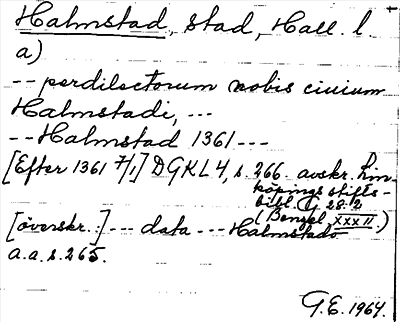 Halmstad, stad, Hall. l.
a)
-- perdilectorum nobis ciuium
Halmstadi, ---
-- Halmstad 1361 ---
[Efter 1361 7/1] DGKL 4, s. 266. avskr. Lin-
köpings stifts-
bibl. G 28:2
(Benzel. XXXII.)
[överskr.:] --- data --- Halmstado
a.a. s. 265.
G.E. 1964.